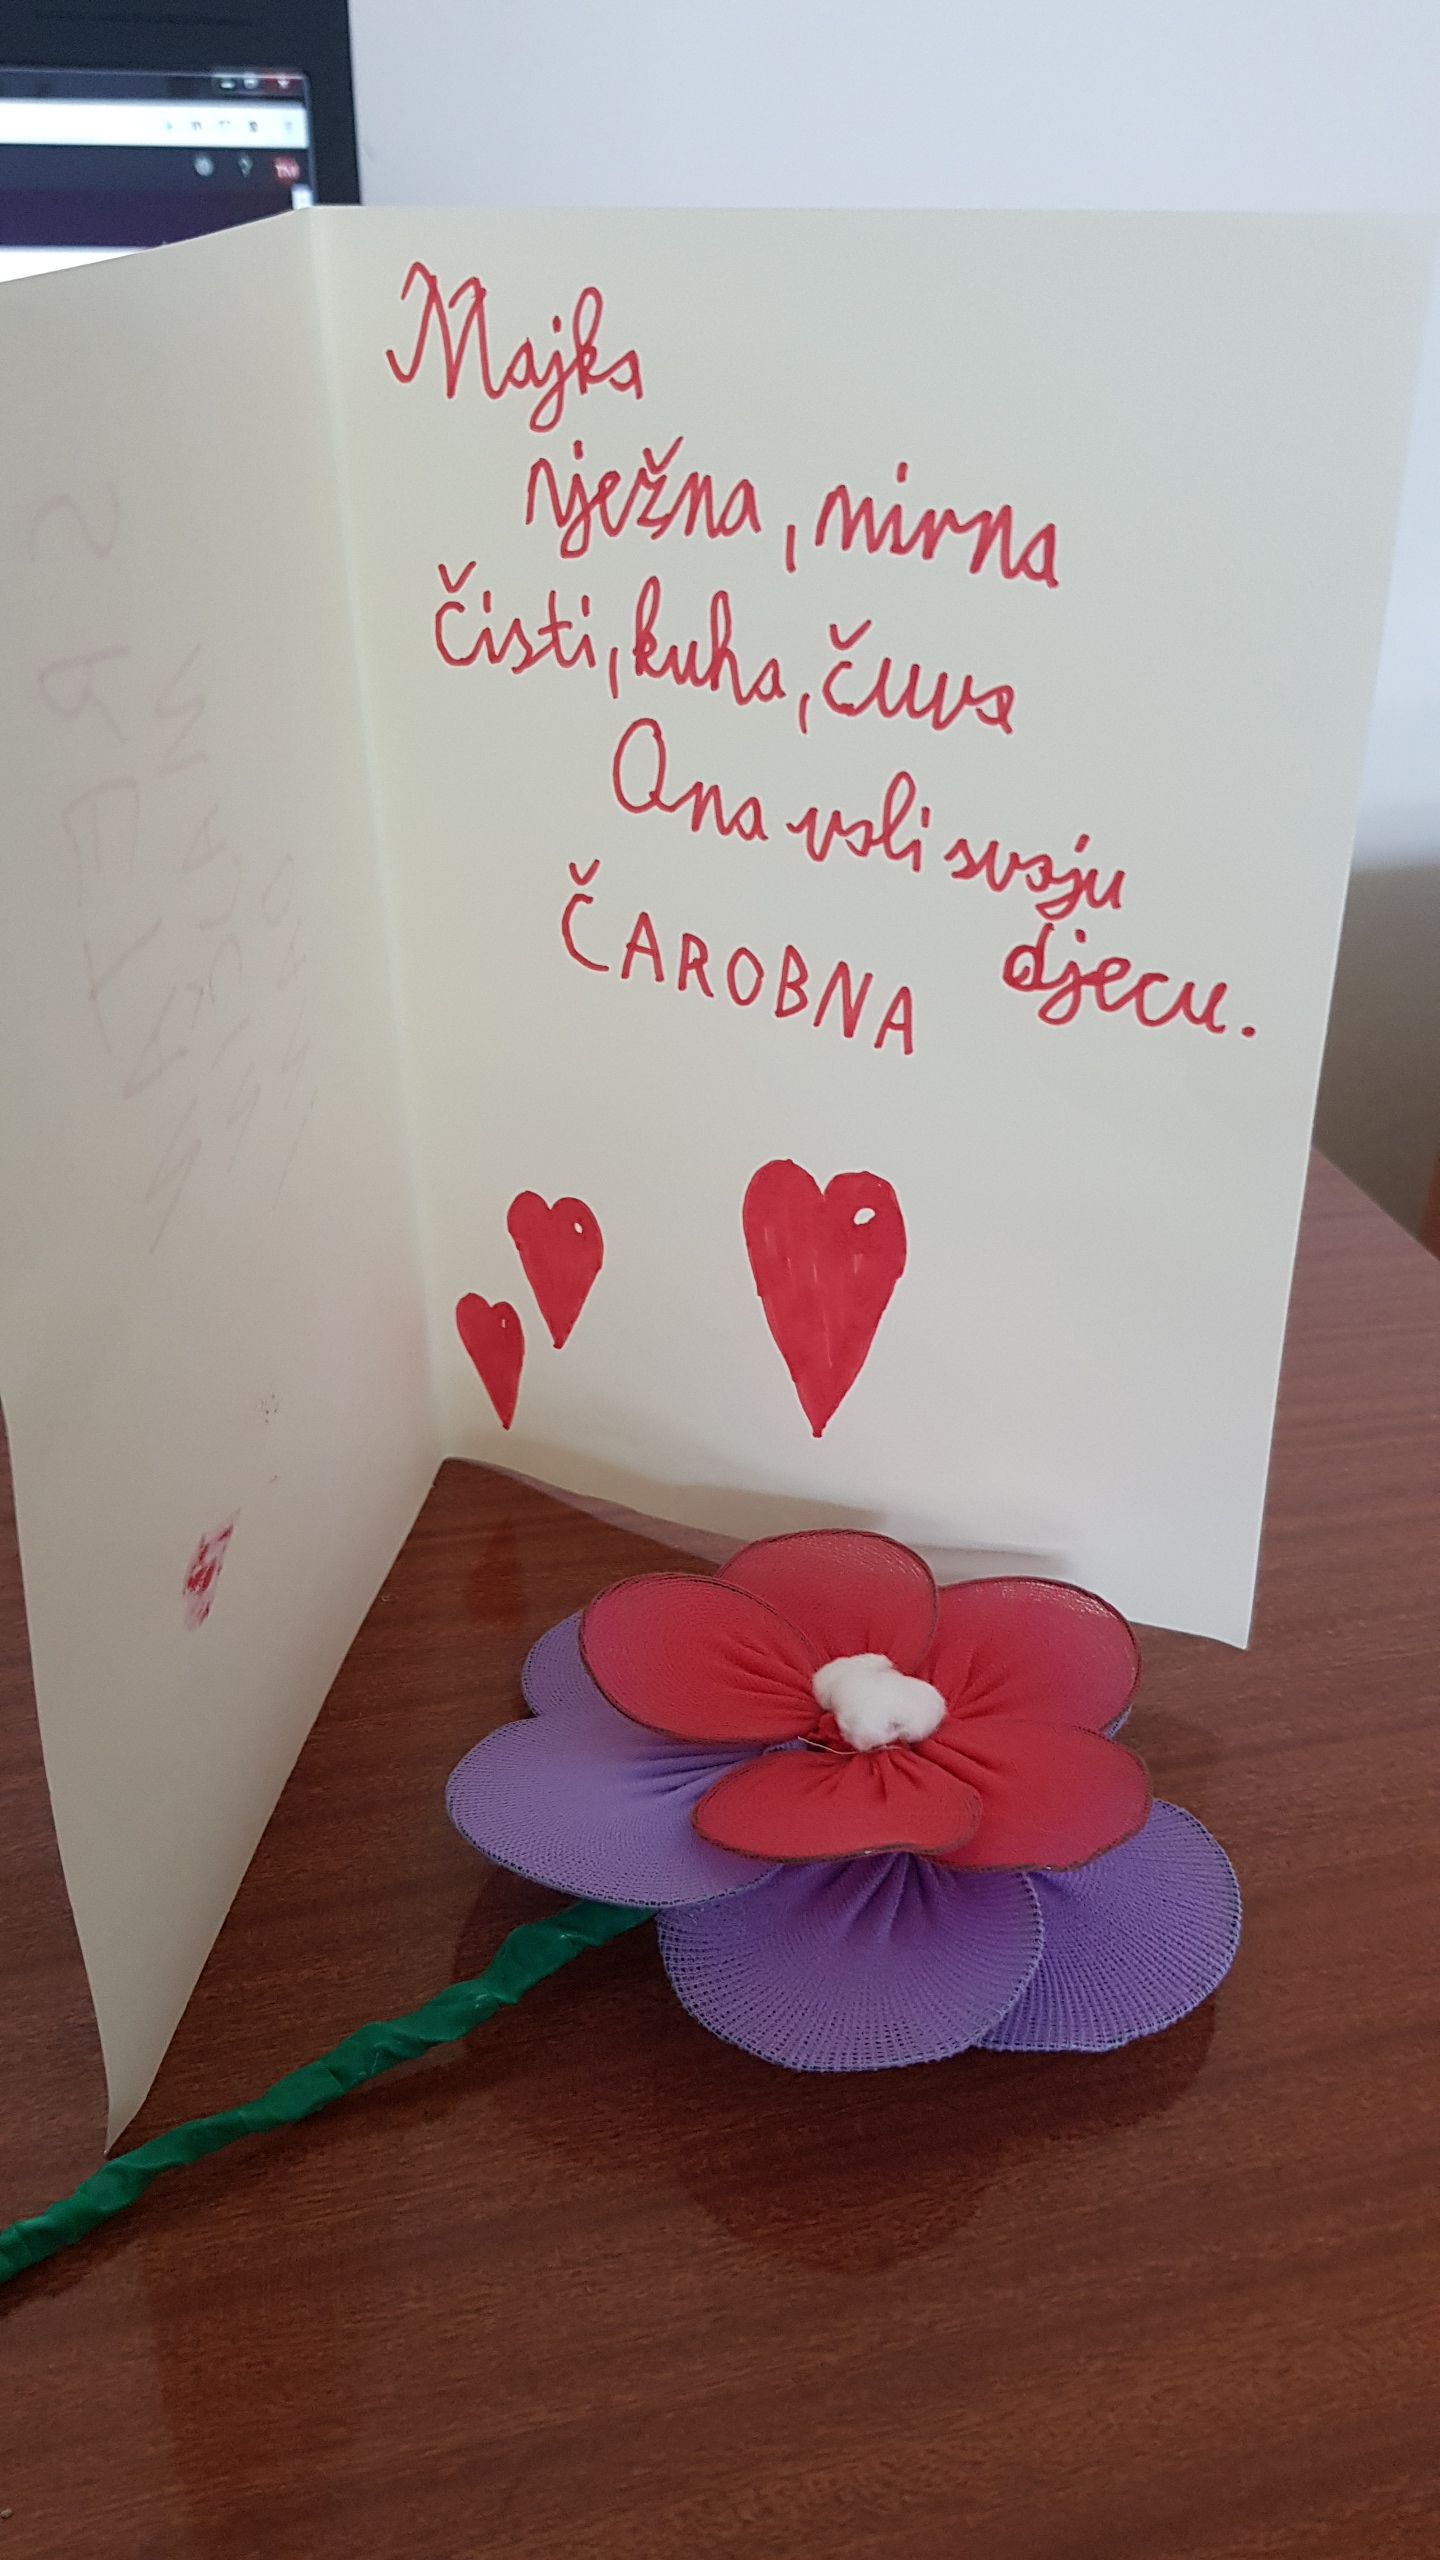 Majka
nježna, mirna
Čisti, kuha, čuva
Ona voli svoju
djecu.
ČAROBNA